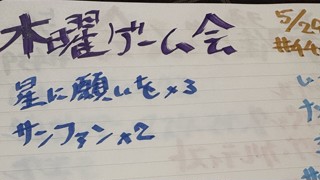 木曜ゲーム会
5/29
星に願いを×3
サンファン×2